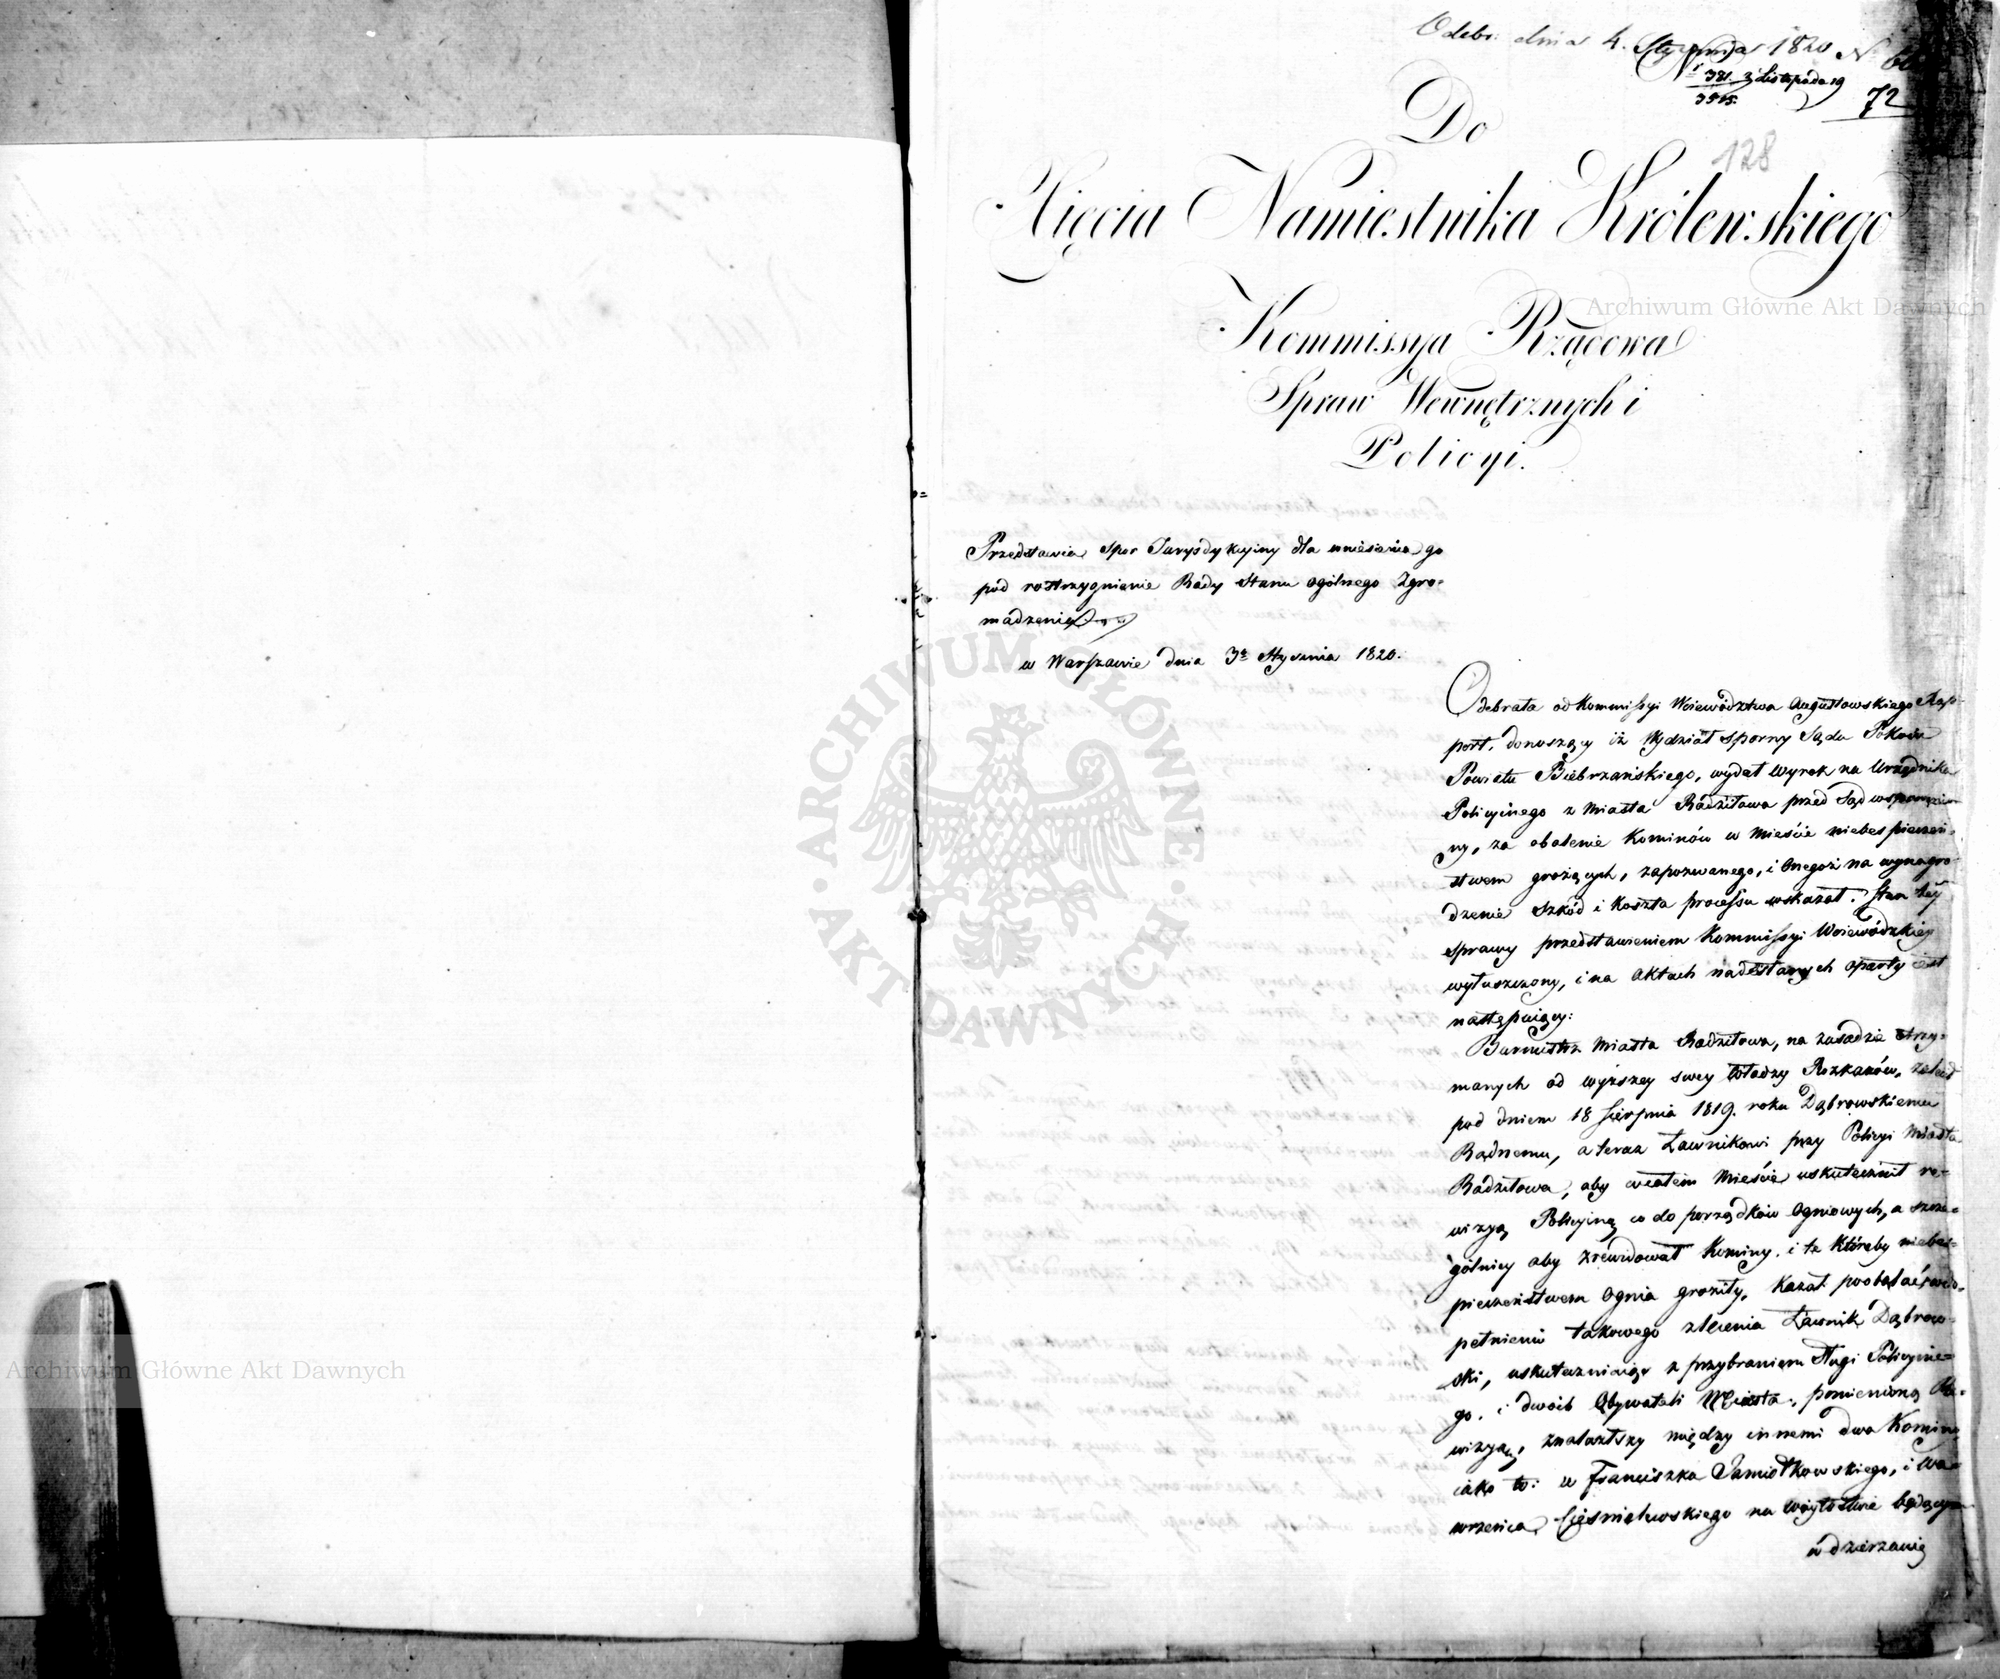 Odebr: dnia 4. Stycznia 1820 N
N 381. z Listopada 19
3515.
72
128
Do
Xięcia Namiestnika Królewskiego
Kommissya Rządowa
Spraw Wewnętrznych i
Policyi.
Przedstawia Spor Jurysdykcyiny dla wniesienia go
pod rostrzygnienie Rady Stanu ogólnego Zgro-
madzenia
w Warszawie dnia 3º Stycznia 1820.
Odebrała od Kommissyi Woiewództwa Augustowskiego Rap-
port, donoszący iż Wydział Sporny Sądu Pokoiu
Powiatu Biebrzańskiego, wydał Wyrok na Urzędnika
Policyinego z Miasta Radziłowa przed Sąd wspomnio-
ny, za obalenie Kominów w Mieście niebespieczeń-
stwem grożących, zapozwanego, i Onegoż na wynagro-
dzenie Szkód i Koszta processu wskazał. Stan tey
sprawy przedstawieniem Kommissyi Woiewódzkiey
wyłuszczony, i na Aktach nadesłanych oparty iest
następuiący:
Burmistrz Miasta Radziłowa, na zasadzie otrzy-
manych od wyższey swey Władzy Rozkazów, zalecił
pod dniem 18 Sierpnia 1819. roku Dąbrowskiemu
Radnemu, a teraz Ławnikowi przy Policyi Miasta
Radziłowa, aby w całem Mieście uskutecznił re-
wizyą Policyiną co do porządków Ogniowych, a szcze-
gólniey aby zrewidował Kominy, i te któreby niebes-
pieczeństwem Ognia groziły, kazał poobalać, w do-
pełnieniu takowego zlecenia Ławnik Dąbrow-
ski, uskuteczniaiąc z przybraniem Sługi Policyine-
go, i dwóch Obywateli Miasta, pomienioną Re-
wizyą, znalazłszy między innemi dwa Kominy
iako to: u Franciszka Samiotkowskiego, i Wa-
wrzeńca Cieśmielewskiego na Woytostwie będącym
w dzierzawie
Archiwum Główne Akt Dawnych
ARCHIWUM GŁÓWNE
AKT DAWNYCH
Archiwum Główne Akt Dawnych